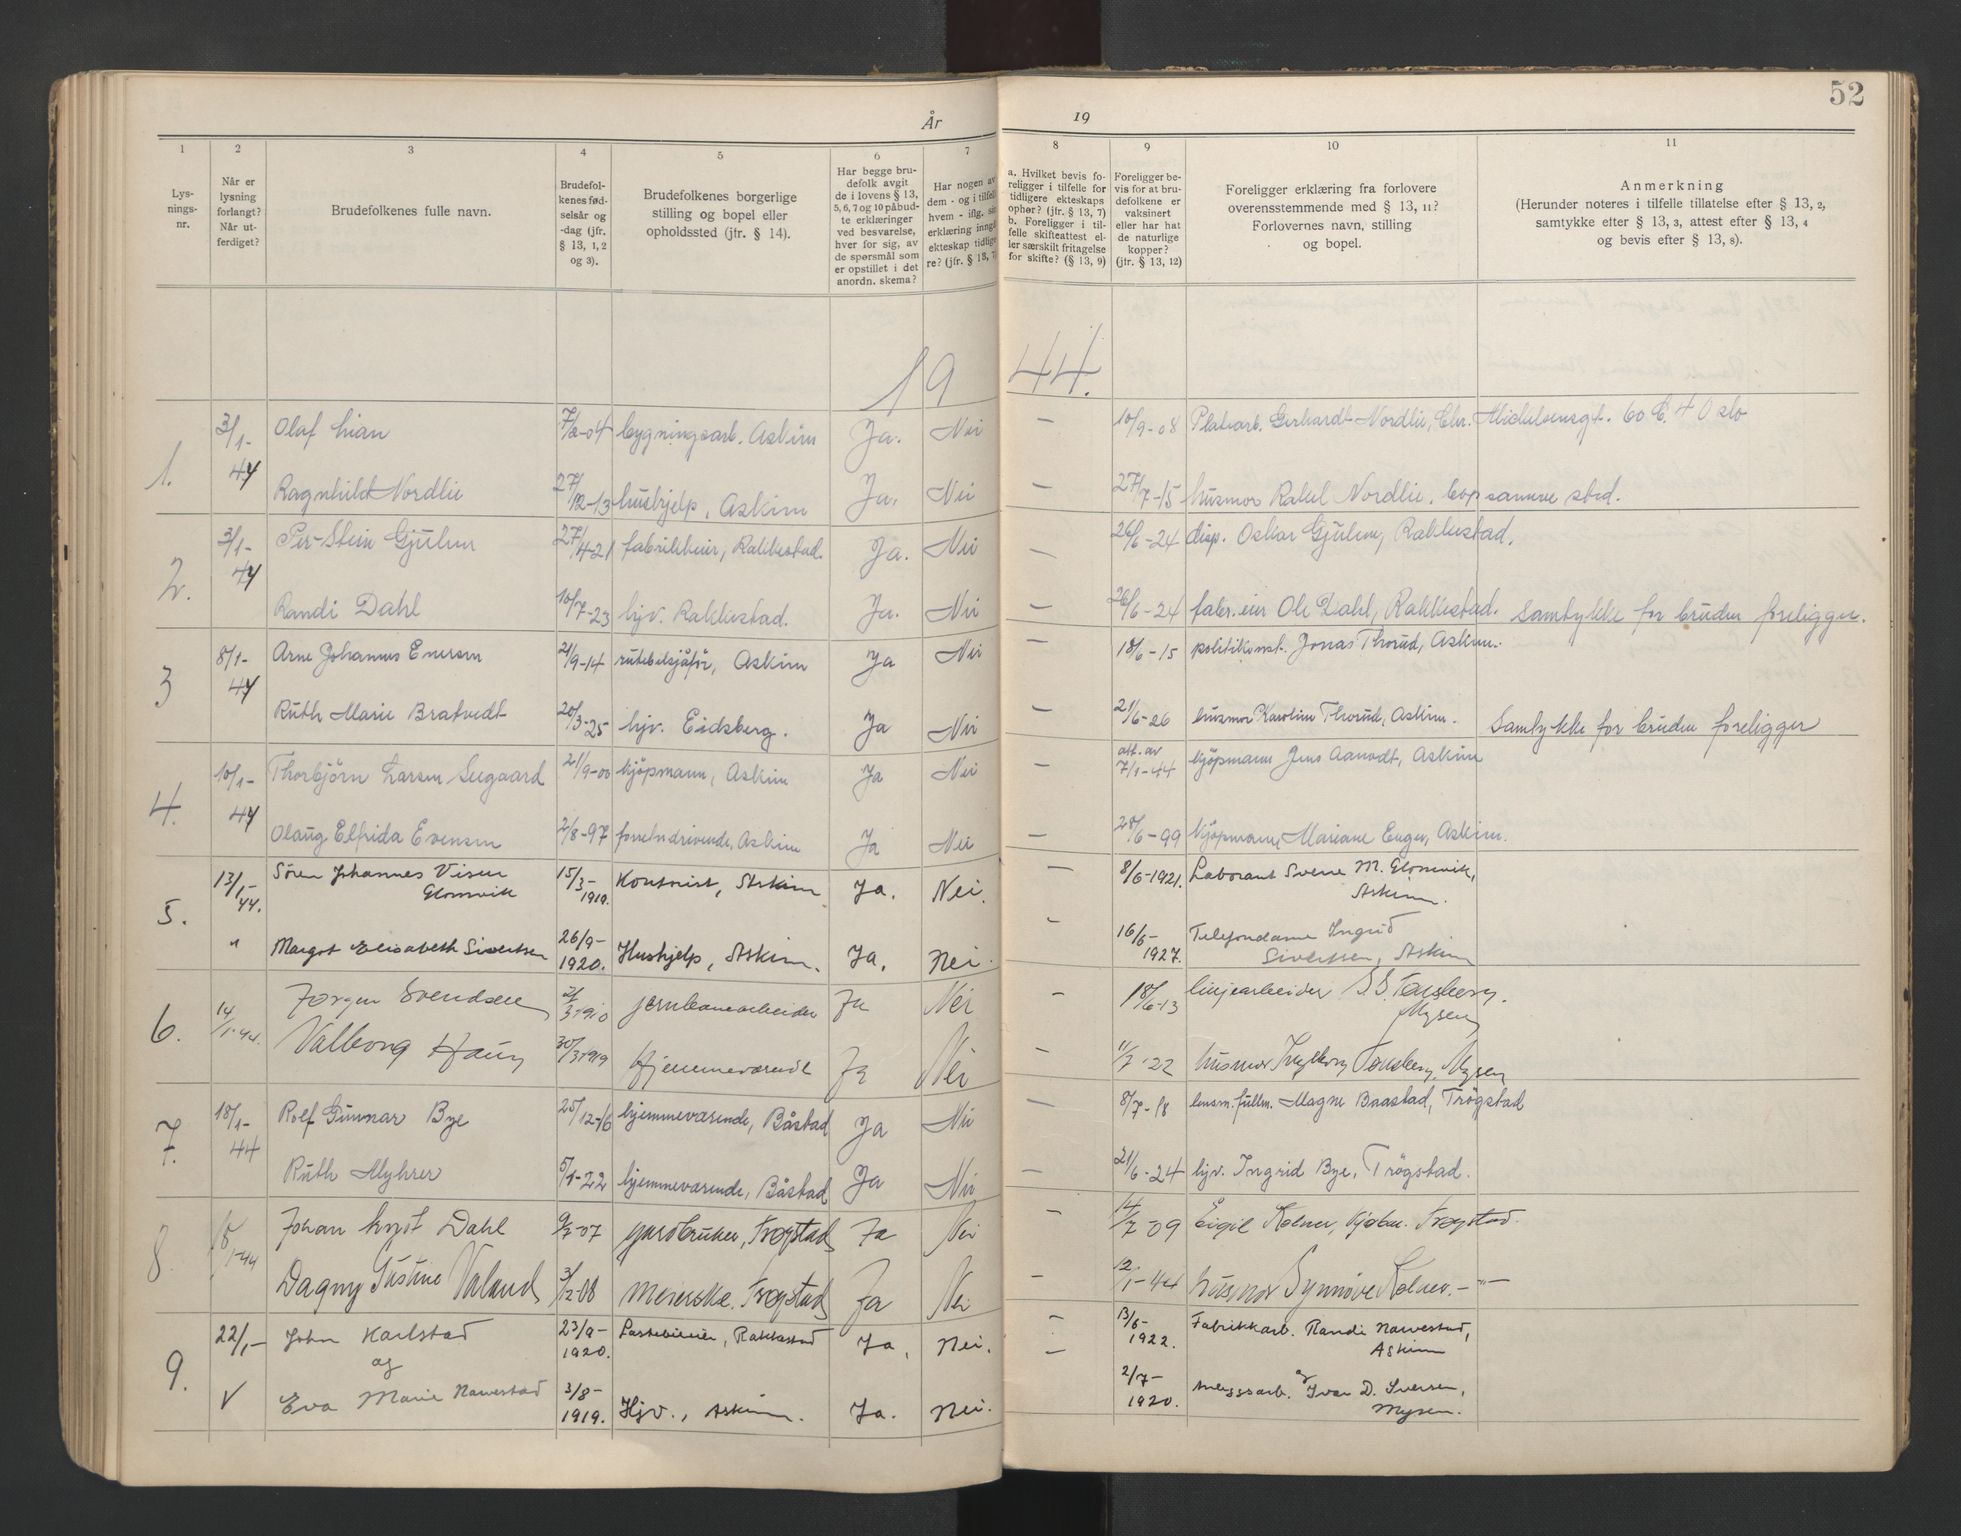 52
År 19
1 2 3 4 5 6 7 8 9 10 11
Lys-
nings-
nr.
Når er
lysning
forlangt?
Når ut-
ferdiget?
Brudefolkenes fulle navn.
Brudefol-
kenes fød-
selsår og
-dag (jfr.
§ 13, 1, 2
og 3).
Brudefolkenes borgerlige
stilling og bopel eller
opholdssted (jfr. § 14).
Har begge bru-
defolk avgit
de i lovens § 13,
5, 6, 7 og 10 påbud-
te erklæringer
ved besvarelse,
hver for sig, av
de spørsmål som
er opstillet i det
anordn. skema?
Har nogen av
dem - og i tilfelle
hvem - iflg. sin
erklæring inngå
ekteskap tidlige
re? (jfr. § 13, 7)
a. Hvilket bevis fo-
religger i tilfelle for
tidligere ekteskaps
ophør? (jfr. § 13, 7)
b. Foreligger i til-
felle skifteattest el-
ler særskilt fritagelse
for skifte? (§ 13, 9)
Foreligger be-
vis for at bru-
defolkene er
vaksinert
eller har hat
de naturlige
kopper?
(jfr. § 13, 12)
Foreligger erklæring fra forlovere
overensstemmende med § 13, 11?
Forlovernes navn, stilling
og bopel.
Anmerkning
(Herunder noteres i tilfelle tillatelse efter § 13, 2,
samtykke efter § 13, 3, attest efter § 13, 4
og bevis efter § 13, 8).
1944.
1. 3/1-44 Olaf Lian 7/2-04 bygningsarb. Askim Ja. Nei — 10/9-08 Gerhardt Nordlie, Chr. Michelsensgt. 60 Oslo
Ragnhild Nordlie 27/12-13 hushjelp, Askim Ja. Nei — 27/7-15 husmor Rakel Nordlie, bop samme sted.
2. 3/1-44 Per-Stein Gjulem 27/4-21 fabrikkeier, Rakkestad. Ja. Nei — 26/6-24 disp. Oskar Gjulem, Rakkestad.
Randi Dahl 10/7-23 hjv. Rakkestad. Ja. Nei — 26/6-24 fabr.eier Ole Dahl, Rakkestad. Samtykke for bruden foreligger.
3 8/1-44 Arne Johannes Enersen 21/9-14 rutebilsjåfør, Askim Ja Nei — 18/6-15 politikonst. Jonas Thorud, Askim.
Ruth Marie Bratvedt 20/3-25 hjv. Eidsberg. Ja Nei — 21/6-26 husmor Karoline Thorud, Askim. Samtykke for bruden foreligger
4. 10/1-44 Thorbjörn Larsen Seegaard 21/9-00 kjöpmann, Askim Ja Nei — att. av 7/1-44 kjöpmann Jens Aamodt, Askim
Olaug Elfrida Evensen 2/8-97 forretn.drivende, Askim Ja Nei — 28/6-99 kjöpmann, Mariane Enger, Askim.
5. 13/1-44. Sören Johannes Visur
Glomvik 15/3-1919. Kontorist, Askim Ja. Nei. — 8/6-1921. Laborant Svene M. Glomvik,
Askim.
" Margot Elisabeth Sivertsen 26/9-1920. Hushjelp, Askim. Ja. Nei. — 16/6-1927. Telefondame Ingrid
Sivertsen, Askim
6. 14/1-44. Jörgen Svendsen 2/3-1910 jernbanearbeider Ja Nei — 18/6-13 linjearbeider S. S. Tonsberg.
Mysen
Valborg Haug 30/3-1919 Hjemmeværende Ja Nei — 11/7-22 husmor Ingeborg Tonsberg, Mysen
7. 18/1-44 Rolf Gunnar Bye 25/12-16 hjemmeværende, Båstad Ja Nei — 8/7-18 lensm.fullm. Magne Baastad, Trögstad
Ruth Myhrer 5/1-22 hjemmeværende, Båstad Ja Nei — 21/6-24 hjv. Ingrid Bye, Trögstad.
8. 18/1-44 Johan Dahl 9/2-07 gardbruker, Trögstad Ja Nei — 14/7-09 Eigil Kolner, Trögstad.
Dagny Gustine Valand 3/12-08 Meierske. Trögstad Ja Nei — 12/1-44 husmor Synnöve Kolner. —"—
9. 22/1- John Karlstad 23/9-1920. Lastebileier, Rakkestad Ja, Nei. — 13/6-1922. Fabrikkarb. Randi Navestad,
Askim
og
V Eva Marie Navestad 3/8-1919. Hjv., Askim. Ja. Nei. — 2/7-1920. Ivar D. Iversen,
Mysen.